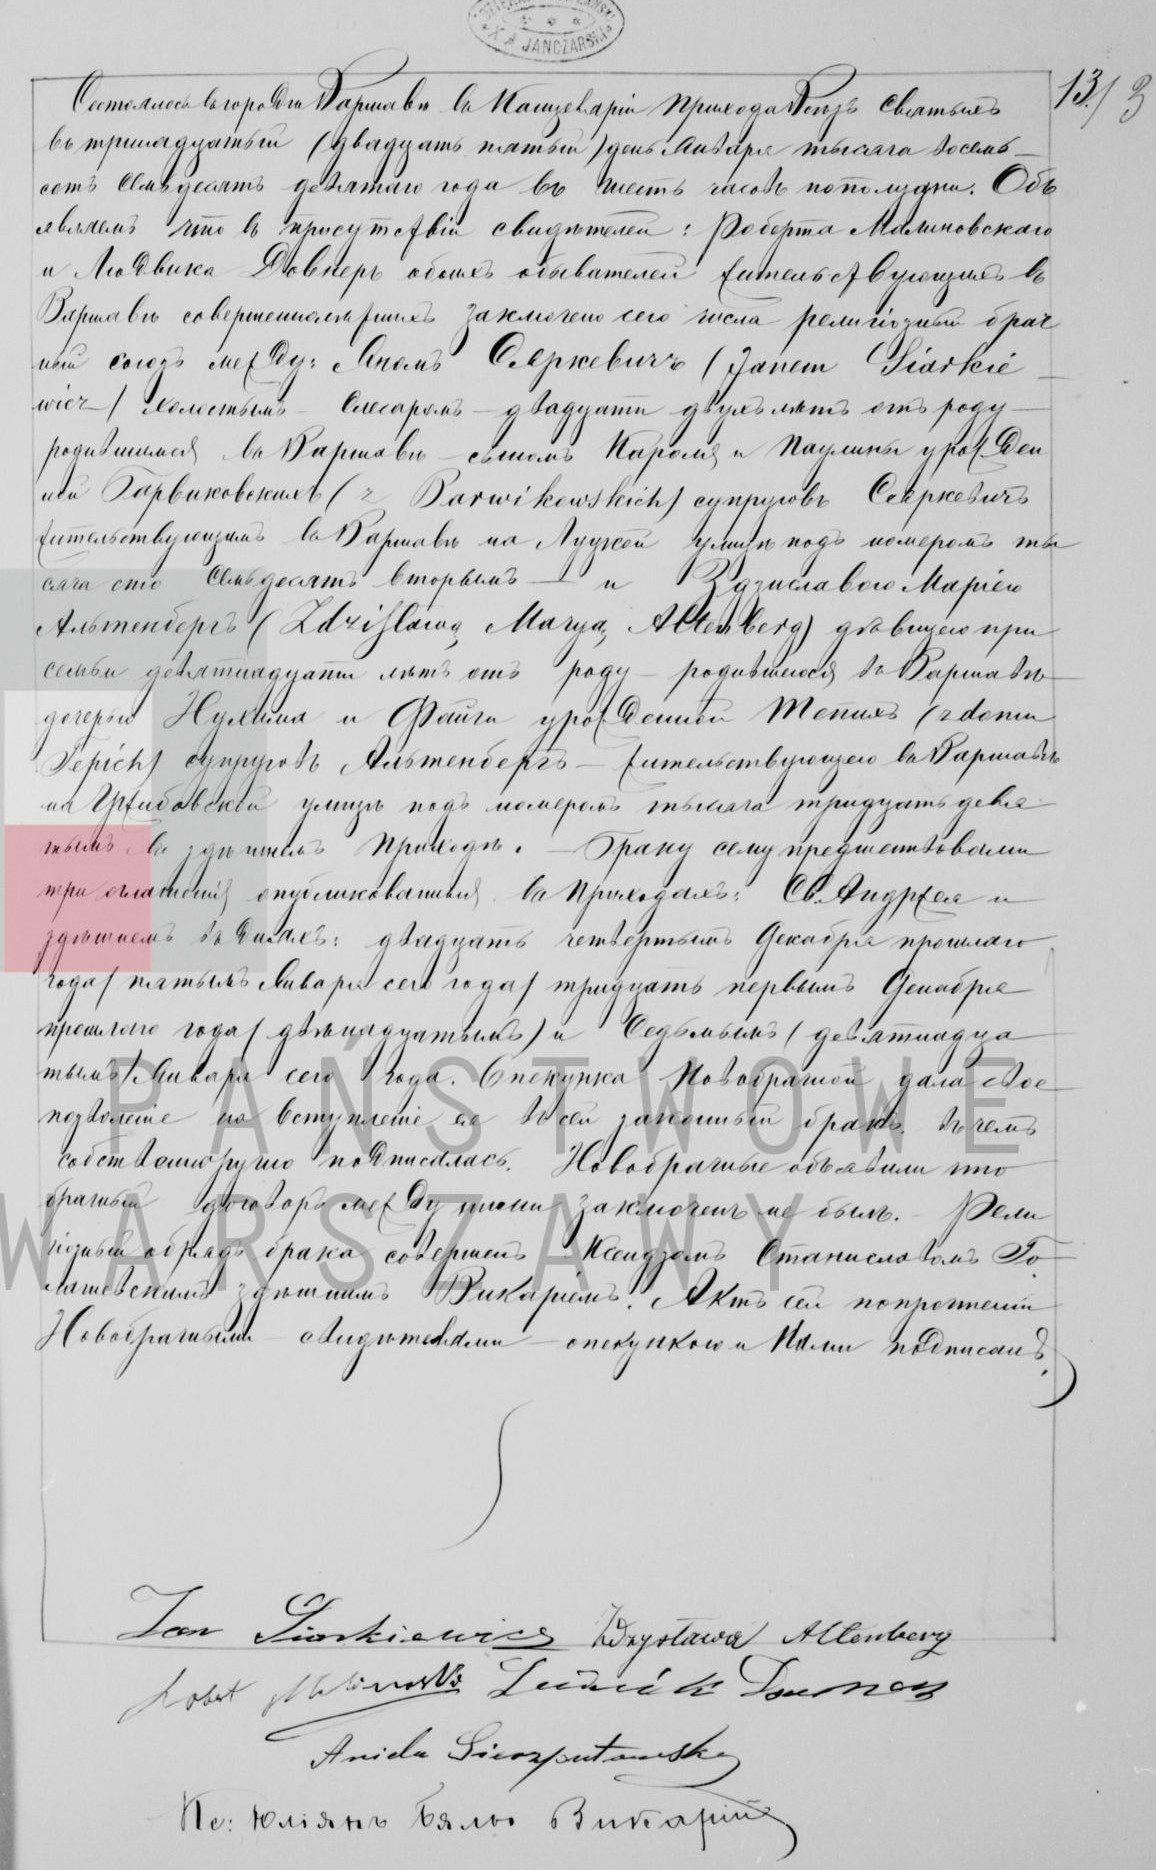 X A JANCZARSKI
13./ 3
Состоялось въ городѣ Варшавѣ въ Канцеляріи Прихода Всѣхъ Святыхъ
въ тринадцатый (двадцать пятый) день Января тысяча восемь
сотъ семьдесятъ девятаго года въ шесть часовъ пополудни. Объ
являемъ что въ присутствіи свидѣтелей: Роберта Малиновскаго
и Людвика обоихъ обывателей жительствующихъ въ
Варшавѣ совершеннолѣтнихъ заключено сего числа религіозный брач
ный союзъ между: Яномъ Сяркевичъ (Janem Siarkie
wicz) холостымъ слесаремъ двадцати двухъ лѣтъ отъ роду
родившимся въ Варшавѣ сыномъ Кароля и Паулины урожден
ной Барвиковскихъ (z Barwikowskich) супруговъ Сяркевичъ
жительствующимъ въ Варшавѣ на Луцкой улицѣ подъ номеромъ ты
сяча сто семьдесятъ вторымъ — и Здзиславою Маріею
Альтенбергъ (Zdzisławą Maryą Altenberg) дѣвицею при
семьи девятнадцати лѣтъ отъ роду родившеюся въ Варшавѣ
дочерью Нухима и Файги урожденной Тепихъ (z domu
Tepich) супруговъ Альтенбергъ — жительствующею въ Варшавѣ
на Гржибовской улицѣ подъ номеромъ тысяча тридцать девя
тымъ въ здѣшнемъ Приходѣ. — Браку сему предшествовали
три оглашенія опубликованныя въ Приходахъ: Св. Андржея и
здѣшнемъ въ дняхъ: двадцать четвертымъ Декабря прошлаго
года / пятымъ Января сего года / тридцать первымъ Декабря
прошлаго года / двѣнадцатымъ) и Седьмымъ / девятнадца
тымъ/ Января сего года. Опекунка Новобрачной дала свое
позволеніе на вступленіе ея въ сей законный бракъ. въ чемъ
собственноручно подписалась. Новобрачные объявили что
брачный договоръ между ними заключенъ не былъ. — Рели
гіозный обрядъ брака совершенъ Ксендзомъ Станиславомъ Го
лашевскимъ здѣшнимъ Викаріемъ. Актъ сей по прочтеніи
Новобрачными свидѣтелями — опекункою и Нами подписанъ.
PAŃSTWOWE
WARSZAWY
Jan Siarkiewicz Zdzysława Altenberg
Robert Malinowski Ludwik
Aniela Sierzputowska
Кс: Юліянъ Бяло Викарій